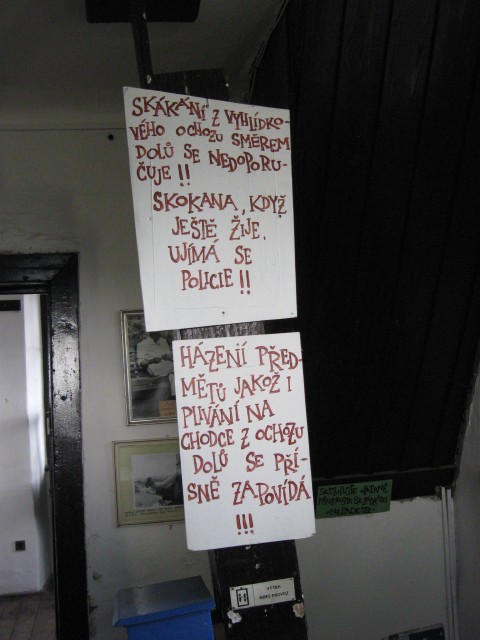 SKÁKÁNÍ Z VYHLÍDKO-
VÉHO OCHOZU SMĚREM
DOLŮ SE NEDOPORU-
ČUJE !!
SKOKANA, KDYŽ
JEŠTĚ ŽIJE,
UJÍMÁ SE
POLICIE !!
HÁZENÍ PŘED-
MĚTŮ JAKOŽ I
PLIVÁNÍ NA
CHODCE Z OCHOZU
DOLŮ SE PŘÍ-
SNĚ ZAPOVÍDÁ
!!!
VÝTAH
MIMO PROVOZ